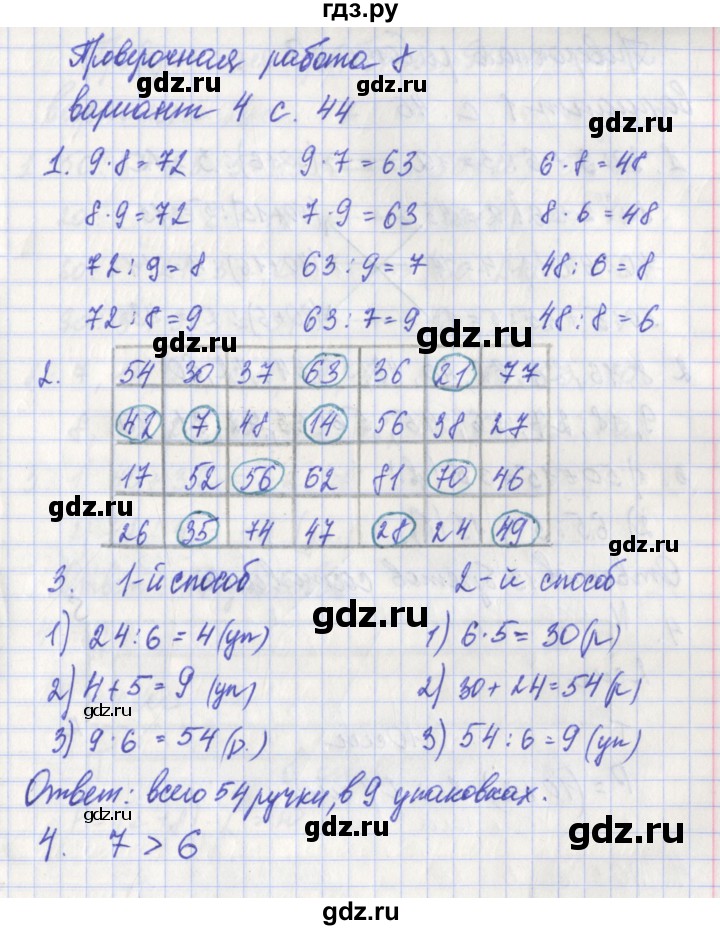 гдз.ру
Проверочная работа 8
gdz.ru
вариант 4 с. 44
gdz.ru
1. 9·8=72 9·7=63 6·8=48
gdz.ru
8·9=72 7·9=63 8·6=48
gdz.ru
72:9=8 63:9=7 48:6=8
gdz.ru
72:8=9 63:7=9 48:8=6
gdz.ru
2. 54 30 37 63 36 21 77
gdz.ru
42 7 48 14 56 38 27
gdz.ru
17 52 56 62 81 70 46
gdz.ru
26 35 74 47 28 24 49
gdz.ru
3. 1-й способ 2-й способ
gdz.ru
1) 24:6=4(уп) 1) 6·5=30(р)
gdz.ru
2) 4+5=9 (уп) 2) 30+24=54(р)
gdz.ru
gdz.ru
3) 9·6=54(р.) 3) 54:6=9(уп)
gdz.ru
Ответ: всего 54 ручки, в 9 упаковках.
gdz.ru
gdz.ru
4. 7>6
gdz.ru
gdz.ru